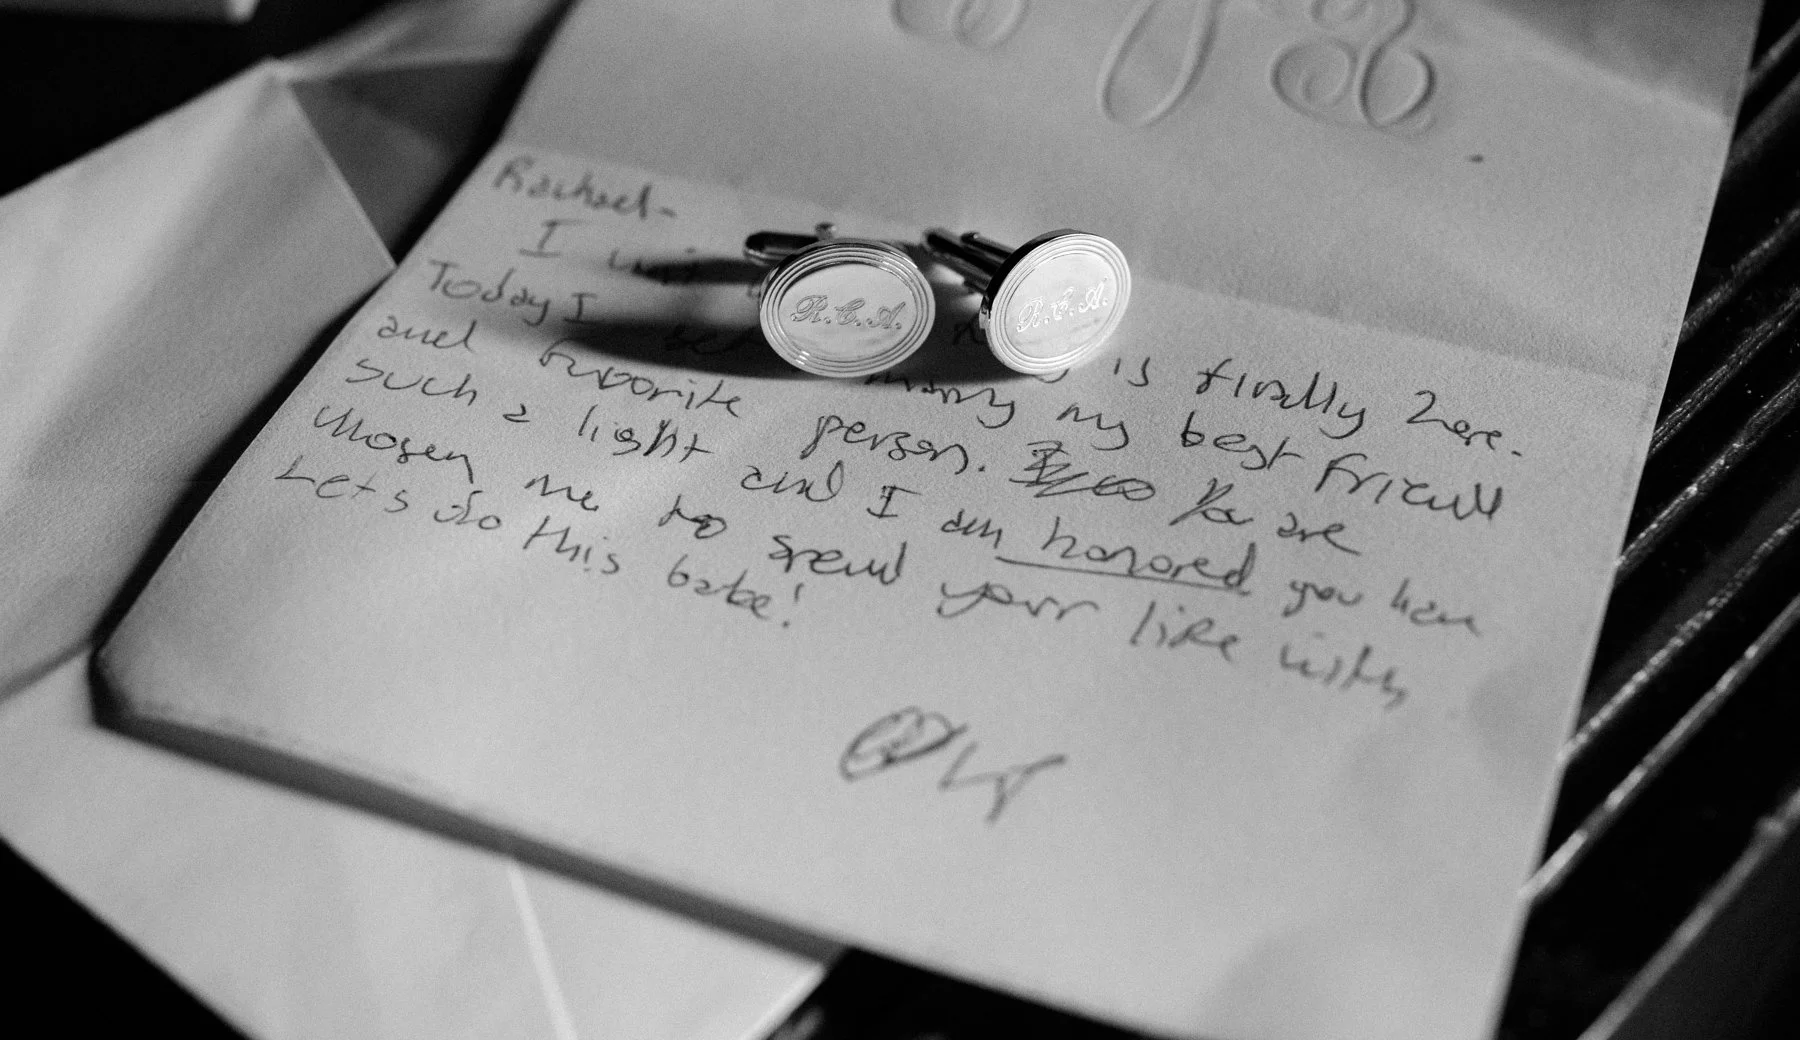 Rachael-
I is finally here.
Today I get marry my best friend
and favorite person. You are
such a light and I am honored you have
chosen me to spend your life with,
Let's do this babe!
R.C.A.
R.C.A.